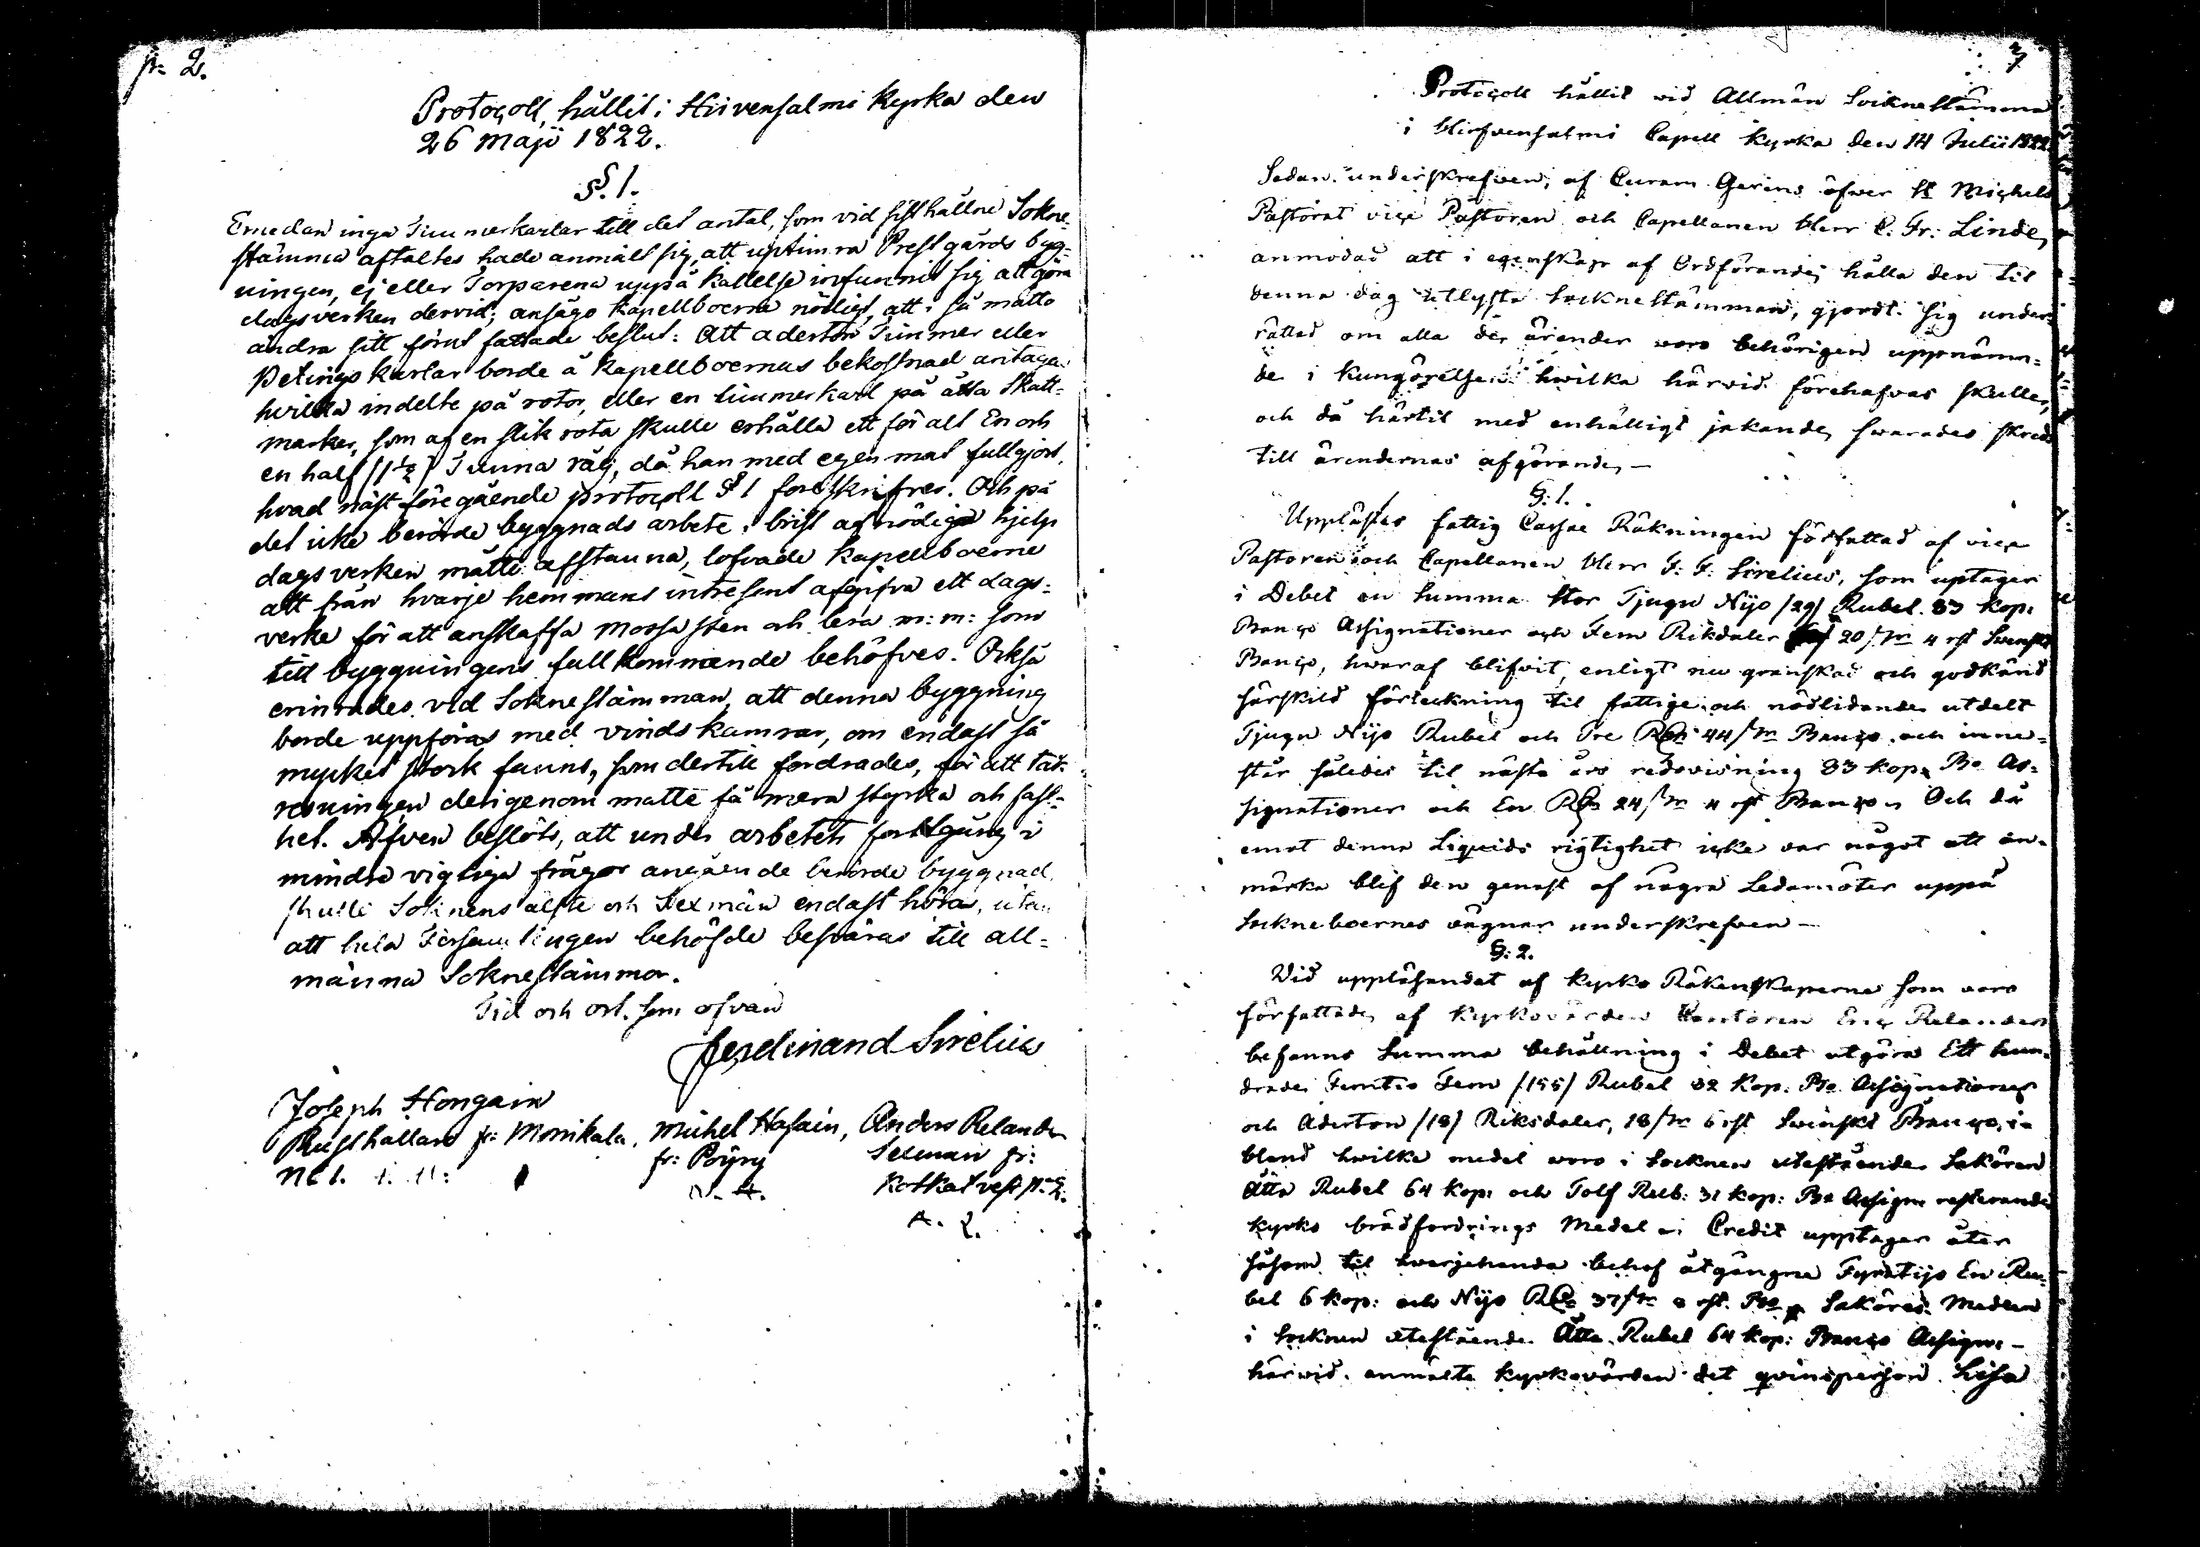 p: 2.
Protocoll, hållit i Hirvensalmi Kyrka den
26 Maji 1822.
§. 1.
Emedan inga Timmerkarlar till det antal, som vid sisthållne Sokne-
stämma aftaltes hade anmält sig, att uptimra Prestgårds byg-
ningen, ej eller Torparena uppå kallelse infunnit sig att göra
dagsverken dervid; ansågo Kapellboerna nödigt, att i så matto
andra sitt förut fattade beslut: Att aderton Timmer eller
Petings karlar borde å Kapellboernas bekostnad antagas
hvilka indelte på rotor, eller en timmerkarl på åtta Skatt-
marker, som af en slik rota skulle erhålla ett för alt En och
en half (1½) Tunna råg, då han med egen mat fullgjort,
hvad näst föregående protocoll § 1 foreskrifves. Och på
det icke berörde byggnads arbete i brist af nödige hjelp
dagsverken måtte afstanna, lofvade Kapellboerne
att från hvarje hemmans intressent afgifva ett dags-
verke för att anskaffa mossa sten och lera m: m: som
till byggningens fullkommende behöfves. Också
erinrades vid Soknestämman, att denna byggning
borde uppföras med vinds kamrar, om endast så
mycket stock fanns, som dertill fordrades, för att tak-
resningen derigenom matte få mera styrka och fast-
het. Äfven beslöts, att under arbetets fortgång i
mindre vigtiga frågor angående berörde byggnad,
skulle Soknens älste och Sexmän endast höras, utan
att hela Församlingen behöfde besväras till all-
männa Soknestämmor.
Tid och ort, som ofvan
Ferdinand Sirelius
Joseph Hongain
Rusthållare fr: Monikala, Michel Hasain, Anders Relander
N: 1. fr: Pöyry Sexman fr:
Kotkatvesi N: 2.
7
Protocoll hållit vid Allmän Socknestämma
i Hirfvensalmi Capell Kyrka den 14 Julii 1822
Sedan underskrefven, af Curam Gerens öfver St Michels
Pastorat vice Pastoren och Capellanen Herr C: Fr: Linde,
anmodad att i egenskap af Ordförande, hålla den til
denna dag utlysta Socknestämman, gjordt sig under-
rättad om alla de ärender voro behörigen uppnämn-
de i Kungörelsen hvilka härvid förehafvas skulle,
och då härtil med enhälligt jakande, svarades skreds
till ärendernas afgörande, —
§: 1.
Upplästes fattig Cassae Räkningen författad af vice
Pastoren och Capellanen Herr F: F: Sirelius, som uptager
i Debet en Summa stor Tjugu Nijo /29/ Rubel 83 Kop:
Banco Assignationer och Fem Riksdaler 20 /: 4 rst Svenskt
Banco, hvaraf blifvit, enligt nu granskad och godkänd
särskild förteckning til fattige och nödlidande utdelt
Tjugu Nijo Rubel och Tre RD: 44 /: Banco och inne-
står således til nästa års redovisning 83 Kop: Bo As-
signationer och En RD: 24 /: 4 rst Banco. Och då
emot denna Liquids rigtighet icke var något att an-
märka blef den genast af några Ledamöter uppå
Sockneboernes vägnar underskrefven —
§: 2.
Vid uppläsandet af Kyrko Räkenskaperna som voro
författade, af Kyrkovärden Cantoren Eric Relander
befanns Summa behållning i Debet utgöra Ett hun-
drade Femtio Fem /155/ Rubel 32 Kop: Bo Assignationer
och Aderton /18/ Riksdaler, 18 /: 6 rst Svenskt Banco, i-
bland hvilka medel voro i Socknen utestående Sakören
Åtta Rubel 64 Kop: och Tolf Rub: 31 Kop: Bo Assign: resterande
Kyrko brådfordrings Medel. i Credit upptager åter
såsom til hvarjehanda behof åtgångne Fyratijo En Ru-
bel 6 Kop: och Nijo RD: 37 /: 8 rst. Bo Saköres Medlen
i Socknen utestående Åtta Rubel 64 Kop: Banco Assign: —
härvid anmälte Kyrkovärden det qvinsperson Lisa